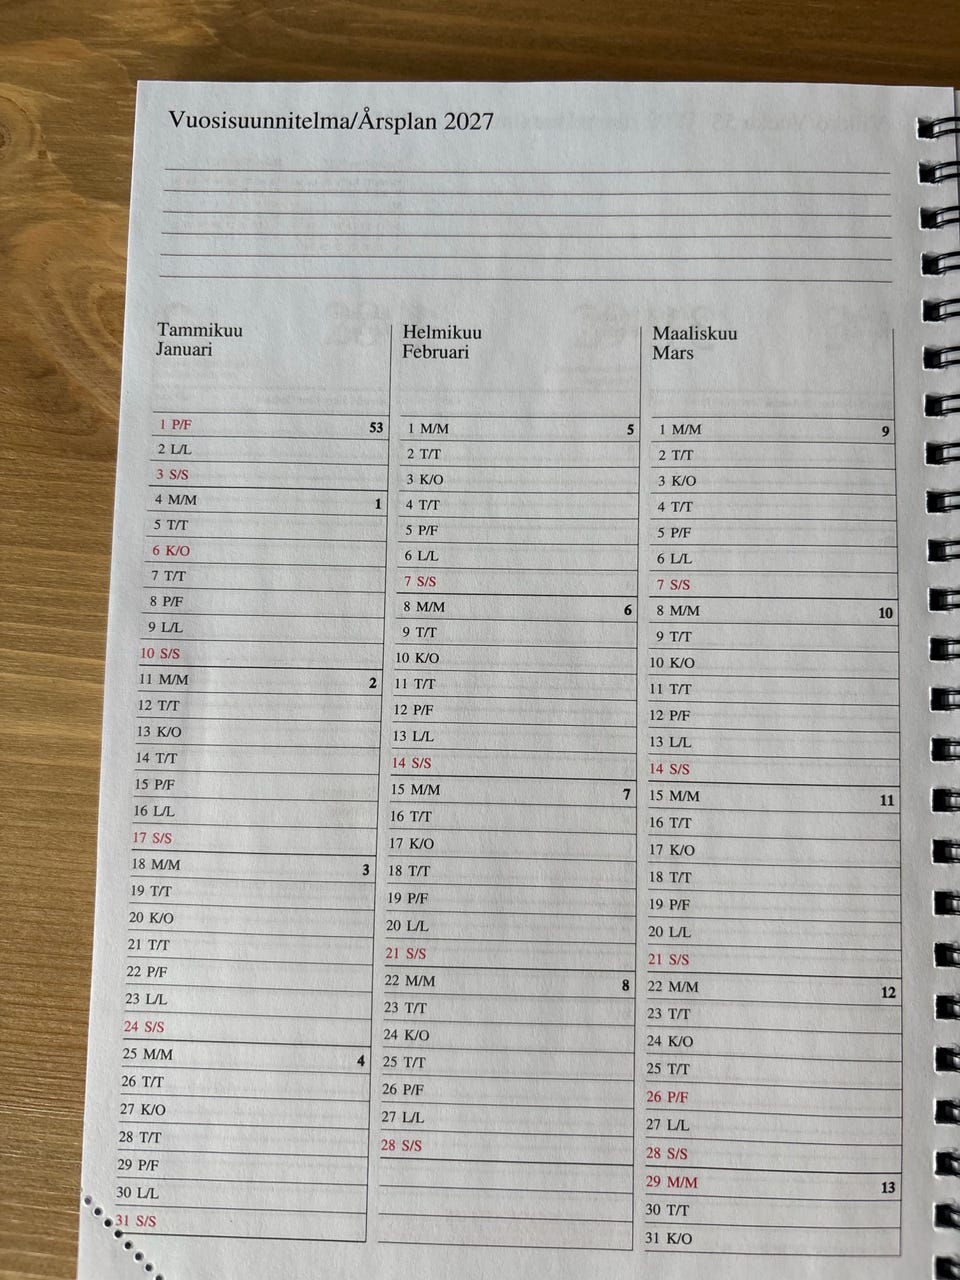 Vuosisuunnitelma/Årsplan 2027
Tammikuu
Januari
1 P/F 53
2 L/L
3 S/S
4 M/M 1
5 T/T
6 K/O
7 T/T
8 P/F
9 L/L
10 S/S
11 M/M 2
12 T/T
13 K/O
14 T/T
15 P/F
16 L/L
17 S/S
18 M/M 3
19 T/T
20 K/O
21 T/T
22 P/F
23 L/L
24 S/S
25 M/M 4
26 T/T
27 K/O
28 T/T
29 P/F
30 L/L
31 S/S
Helmikuu
Februari
1 M/M 5
2 T/T
3 K/O
4 T/T
5 P/F
6 L/L
7 S/S
8 M/M 6
9 T/T
10 K/O
11 T/T
12 P/F
13 L/L
14 S/S
15 M/M 7
16 T/T
17 K/O
18 T/T
19 P/F
20 L/L
21 S/S
22 M/M 8
23 T/T
24 K/O
25 T/T
26 P/F
27 L/L
28 S/S
Maaliskuu
Mars
1 M/M 9
2 T/T
3 K/O
4 T/T
5 P/F
6 L/L
7 S/S
8 M/M 10
9 T/T
10 K/O
11 T/T
12 P/F
13 L/L
14 S/S
15 M/M 11
16 T/T
17 K/O
18 T/T
19 P/F
20 L/L
21 S/S
22 M/M 12
23 T/T
24 K/O
25 T/T
26 P/F
27 L/L
28 S/S
29 M/M 13
30 T/T
31 K/O